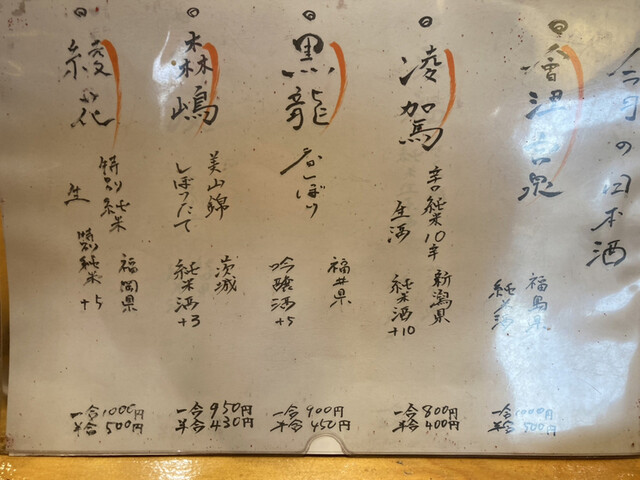 今月の日本酒
會津吉泉
福島県
純米酒
一合1000円
半合500円
凌駕
辛口純米10辛
生酒
新潟県
純米酒+10
一合800円
半合400円
黒龍
春しぼり
福井県
吟醸酒+5
一合900円
半合450円
森嶋
美山錦
しぼりたて
茨城
純米酒+3
一合950円
半合430円
綾花
特別純米
生
福岡県
特別純米+5
一合1000円
半合500円